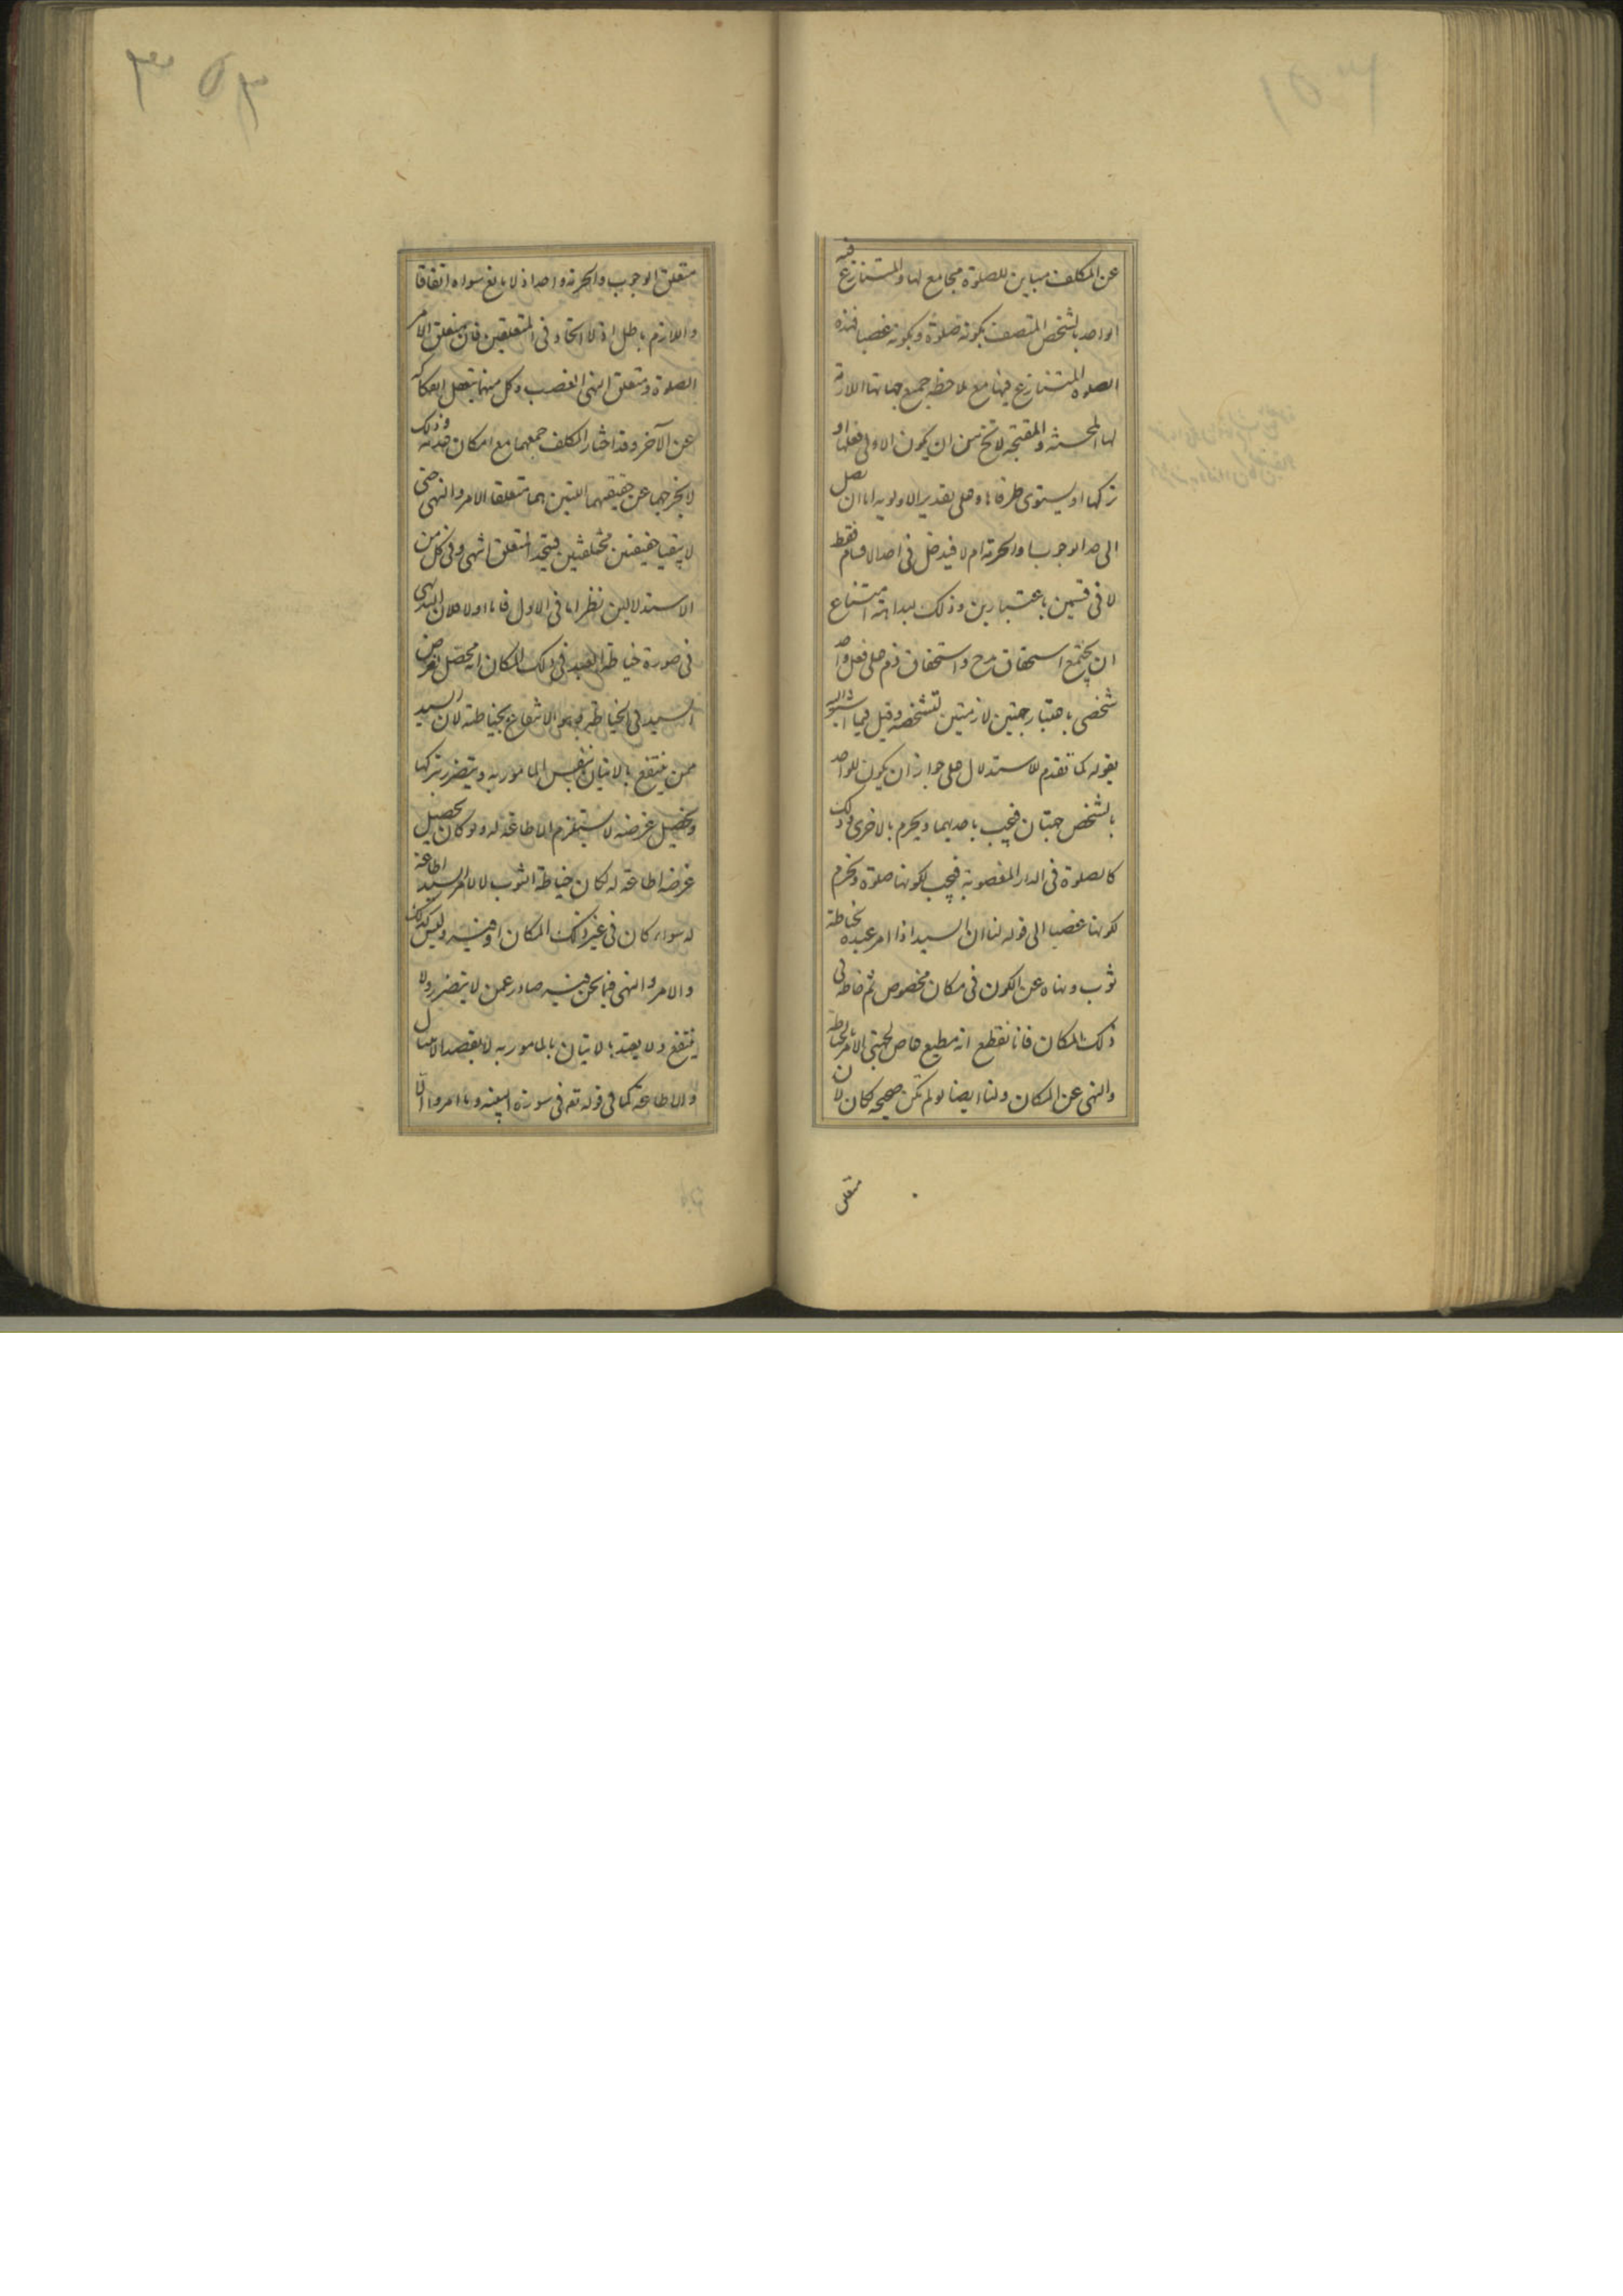 عن المكلف مباين للصلوة مجامع لها والمتنازع فيه
الواحد بالشخص المتصف بكونه صلوة وبكونه غصبا فهذه
الصلوة المتنازع فيها مع ملاحظة جميع جهاتها اللازمة
لها المحسنة والمقبحة لا تخ من ان يكون الاولى فعلها او
تركها او يستوى طرفاها وعلى تقدير الاولوية اما ان تصل
الى حد الوجوب او الحرمة ام لا فيدخل في احد الاقسام فقط
لا في قسمين باعتبارين وذلك لبداهة امتناع
ان يجتمع استحقاق مدح واستحقاق ذم على فعل واحد
شخصي باعتبار جهتين لازمتين لتشخصه وقيل فيما
بقوله كما تقدم للاستدلال على جواز ان يكون للواحد
بالشخص جهتان فيجب باحديهما ويحرم بالاخرى وذلك
كالصلوة في الدار المغصوبة فيجب لكونها صلوة وتحرم
لكونها غصبا الى قوله لنا ان السيد اذا امر عبده بخياطة
ثوب ونهاه عن الكون في مكان مخصوص ثم خاطه في
ذلك المكان فانا نقطع انه مطيع عاص لجهتي الامر بالخياطة
والنهى عن المكان ولنا ايضا لو لم تكن صحيحه لكان لان
متعلق
٣٥٣
متعلق الوجوب والحرمة واحدا اذ لا مانع سواه اتفاقا
واللازم باطل اذ لا اتحاد في المتعلقين فان متعلق الامر
الصلوة ومتعلق النهى الغصب وكل منهما يتعقل انفكاكه
عن الآخر وقد اختار المكلف جمعهما مع امكان عدمه وذلك
لا يخرجهما عن حقيقتهما اللتين هما متعلقا الامر والنهى حتى
لا يبقيا حقيقتين مختلفتين فيتحد المتعلق انتهى وفي كل من
الاستدلالين نظر اما في الاول فاما اولا فلان البديهى
في صورة خياطة العبد في ذلك المكان انه محصل لغرض
السيد في الخياطة وهو الانتفاع بخياطته لان السيد
ممن ينتفع بالاتيان بنفس المامور به ويتضرر بتركها
وتحصيل غرضه لا يستلزم الاطاعة له ولو كان تحصيل
غرضه اطاعة له لكان خياطة الثوب لا لامر السيد اطاعة
له سواء كان في غير ذلك المكان او فيه وليس كذلك
والامر والنهى فيما نحن فيه صادر عمن لا يتضرر ولا
ينتفع ولا يعتد بالاتيان بالمامور به لا بقصد الامتثال
والاطاعة كما في قوله تعه في سورة البينه وما امروا الا